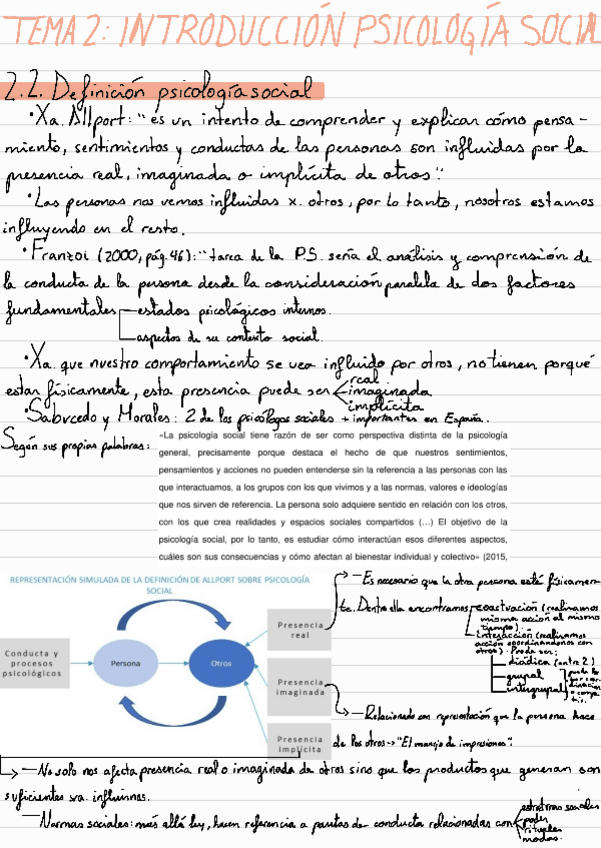 TEMA 2: INTRODUCCIÓN PSICOLOGÍA SOCIAL
2.2. Definición psicología social
·Xa. Allport: "es un intento de comprender y explicar cómo pensa-
miento, sentimientos y conductas de las personas son influidas por la
presencia real, imaginada o implícita de otros".
·Las personas nos vemos influidas x. otros, por lo tanto, nosotros estamos
influyendo en el resto.
·Franzoi (2000, pág. 46): "tarea de la P.S. sería el análisis y comprensión de
la conducta de la persona desde la consideración paralela de dos factores
fundamentales estados psicológicos internos.
aspectos de su contexto social.
·Xa. que nuestro comportamiento se vea influido por otros, no tienen porqué
estar físicamente, esta presencia puede ser real
imaginada
implícita
·Sabucedo y Morales: 2 de los psicólogos sociales + importantes en España.
Según sus propias palabras:
«La psicología social tiene razón de ser como perspectiva distinta de la psicología
general, precisamente porque destaca el hecho de que nuestros sentimientos,
pensamientos y acciones no pueden entenderse sin la referencia a las personas con las
que interactuamos, a los grupos con los que vivimos y a las normas, valores e ideologías
que nos sirven de referencia. La persona solo adquiere sentido en relación con los otros,
con los que crea realidades y espacios sociales compartidos (...) El objetivo de la
psicología social, por lo tanto, es estudiar cómo interactúan esos diferentes aspectos,
cuáles son sus consecuencias y cómo afectan al bienestar individual y colectivo» (2015,
REPRESENTACIÓN SIMULADA DE LA DEFINICIÓN DE ALLPORT SOBRE PSICOLOGÍA
SOCIAL
Conducta y
procesos
psicológicos
Persona
Otros
Presencia
real
Presencia
imaginada
Presencia
implícita
→ - Es necesario que la otra persona esté físicamen-
te. Dentro ella encontramos coactuación (realizamos
misma acción al mismo
tiempo).
interacción (realizamos
acción coordinándonos con
otros). Puede ser:
diádica (entre 2)
grupal
intergrupal
puede
ser
- Relacionado con representación que la persona hace
de los otros → "El manejo de impresiones".
→ - No solo nos afecta presencia real o imaginada de otros sino que los productos que generan son
suficientes xa. influirnos.
- Normas sociales: más allá ley, hacen referencia a pautas de conducta relacionadas con
sociales
poder
rituales
modas.